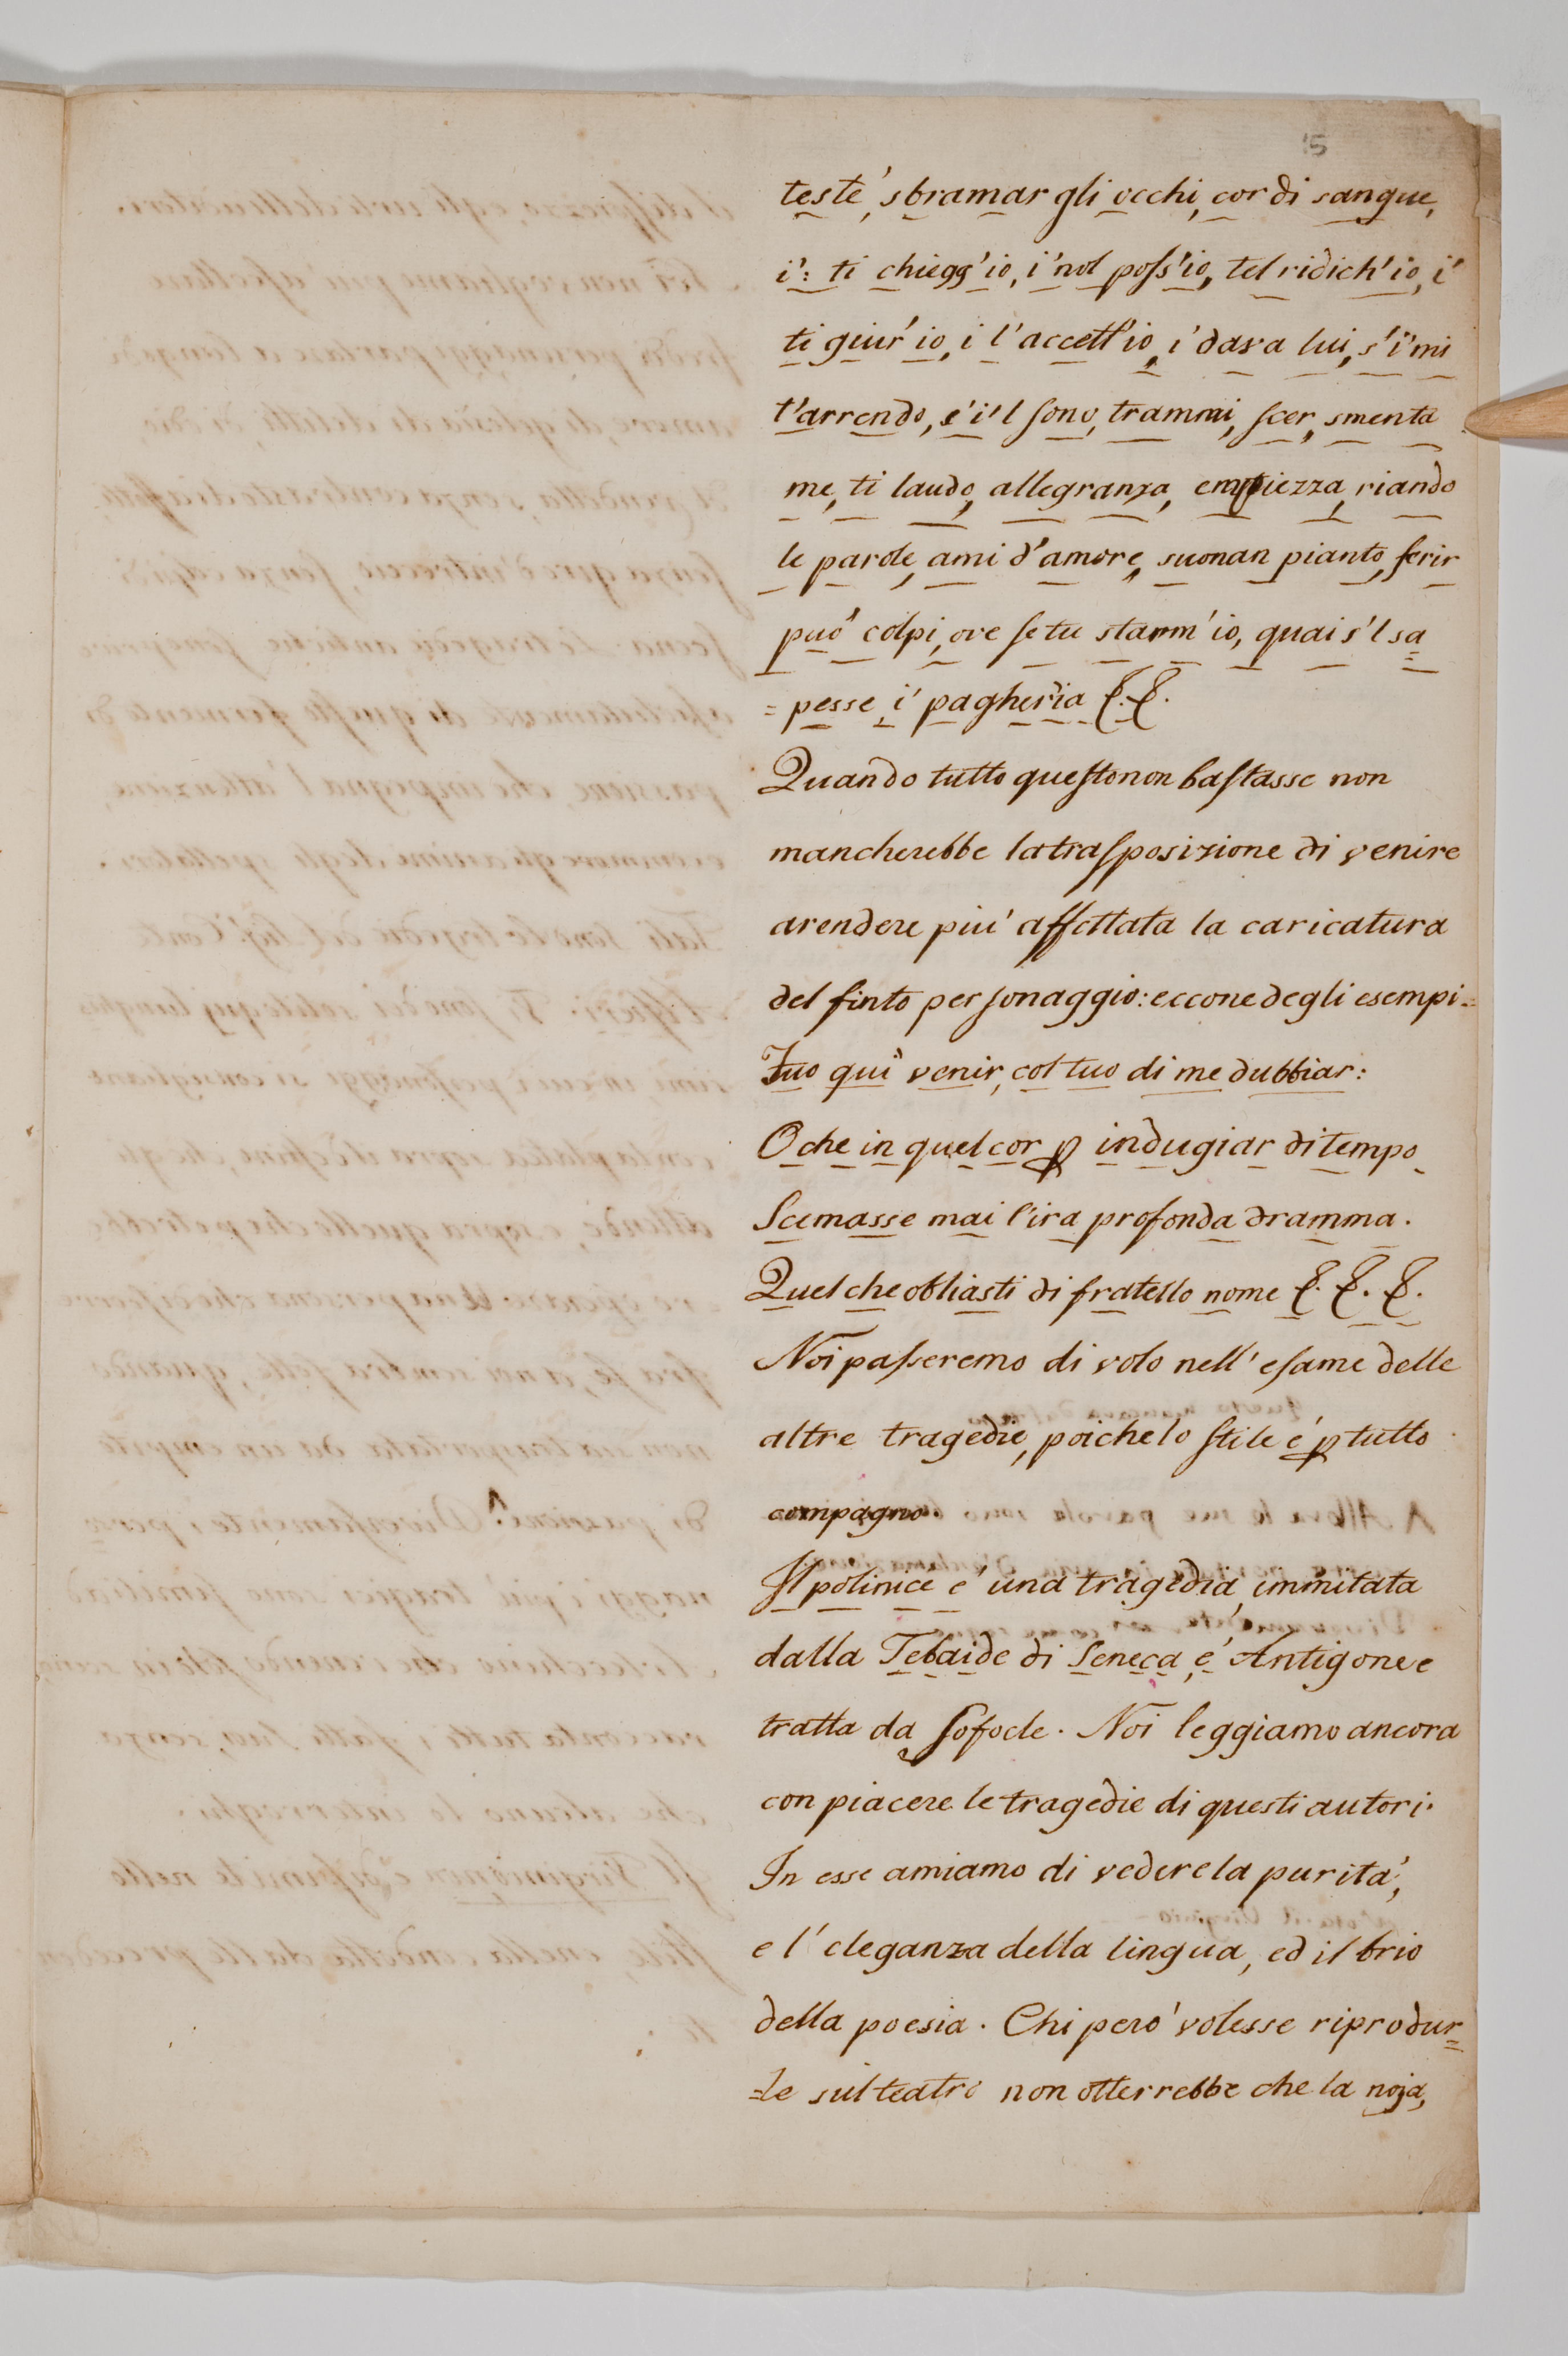 15
testé, sbramar gli occhi, cor di sangue,
i': ti chiegg'io, i' nol poss'io, tel ridich'io, i'
ti giur'io, i l'accett'io, i' dava lui, s'i' mi
t'arrendo, s'i'l sono, trammi, scer, smenta
me, ti laudo, allegranza, empiezza, riando
le parole, ami d'amore, suonan pianto, ferir
può colpi, ove se tu stamm'io, quai s'l sa
=pesse, i' pagheria &. &.
Quando tutto questo non bastasse non
mancherebbe la trasposizione di venire
a rendere piú affettata la caricatura
del finto personaggio: eccone degli esempi=
Tuo quì venir, col tuo di me dubbiar:
O che in quel cor p indugiar di tempo
Scemasse mai l'ira profonda dramma.
Quel che obliasti di fratello nome &. &. &.
Noi passeremo di volo nell'esame delle
altre tragedie, poiche lo stile é p tutto
compagno.
Il polinice e' una tragedia immitata
dalla Tebaide di Seneca, e' Antigone e
tratta da Sofocle. Noi leggiamo ancora
con piacere le tragedie di questi autori.
In esse amiamo di vedere la purita',
e l'eleganza della lingua, ed il brio
della poesia. Chi pero' volesse riprodur=
=le sul teatro non otterrebbe che la noja,